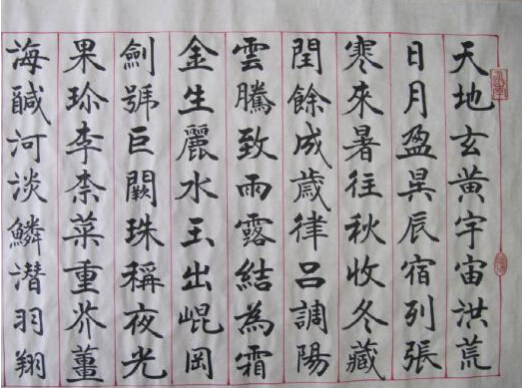 天地玄黃宇宙洪荒
日月盈昃辰宿列張
寒來暑往秋收冬藏
閏餘成歲律呂調陽
雲騰致雨露結為霜
金生麗水玉出崐岡
劍號巨闕珠稱夜光
果珍李柰菜重芥薑
海鹹河淡鱗潛羽翔